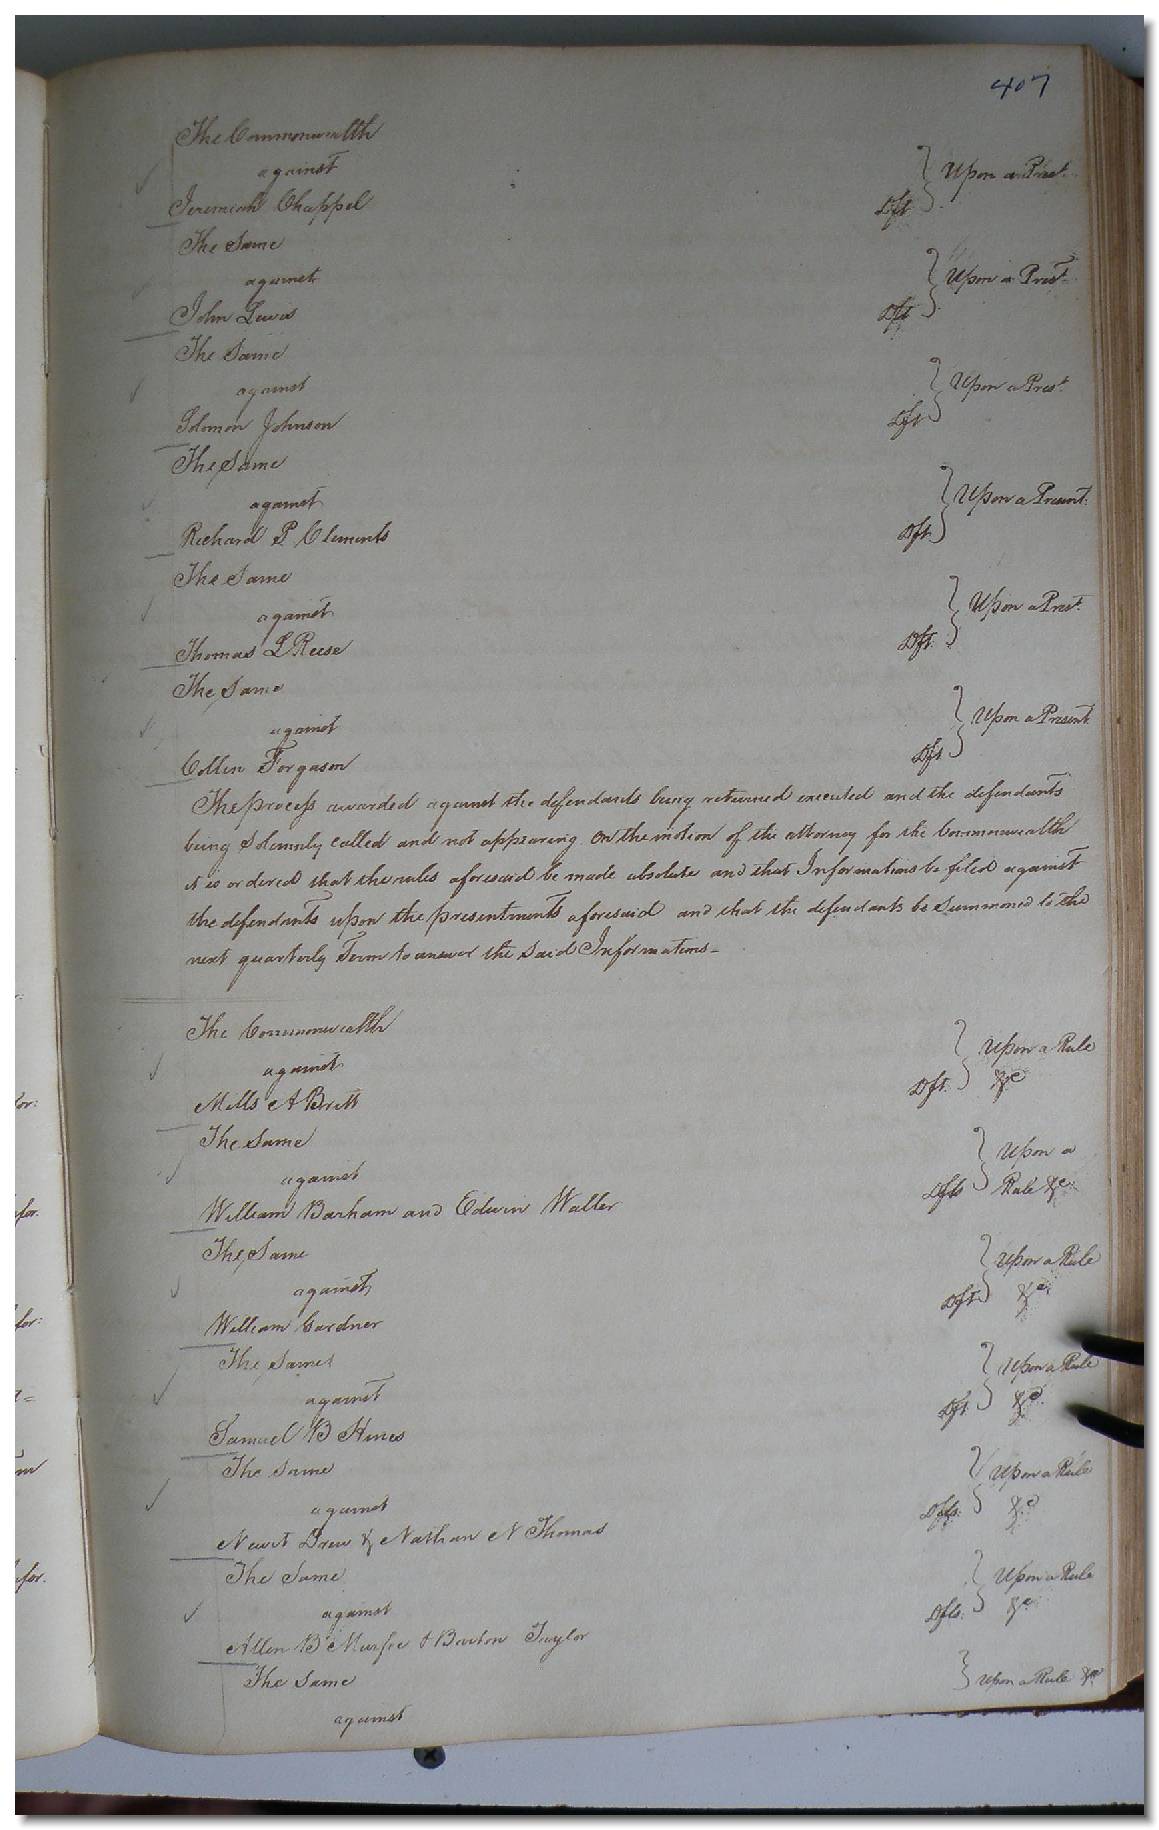 407
The Commonwealth
against } Upon a Prest.
Jeremiah Chappel Dft
The Same
against } Upon a Prest.
John Lewis Dft
The Same
against } Upon a Prest.
Solomon Johnson Dft
The Same
against } Upon a Present.
Richard P Clements Dft.
The Same
against } Upon a Prest.
Thomas L Reese Dft.
The Same
against } Upon a Present
Collin Forgason Dft
The process awarded against the defendants being returned executed and the defendants
being Solemnly called and not appearing On the motion of the attorney for the Commonwealth
it is ordered that the rules aforesaid be made absolute and that Informations be filed against
the defendants upon the presentments aforesaid and that the defendants be Summoned to the
next quarterly Term to answer the said Informations-
The Commonwealth
against } Upon a Rule
Mills A Britt Dft. &c
The Same
against } Upon a
William Barham and Edwin Waller Dfts Rule &c
The Same
against } Upon a Rule
William Gardner Dft. &c
The Same
against } Upon a Rule
Samuel B Hines Dft &c
The Same
against } Upon a Rule
Newit Drew & Nathan N Thomas Dfts. &c
The Same
against } Upon a Rule
Allen B Murfee & Barton Taylor Dfts. &c
The Same } Upon a Rule &c
against
for:
for.
for:
for.